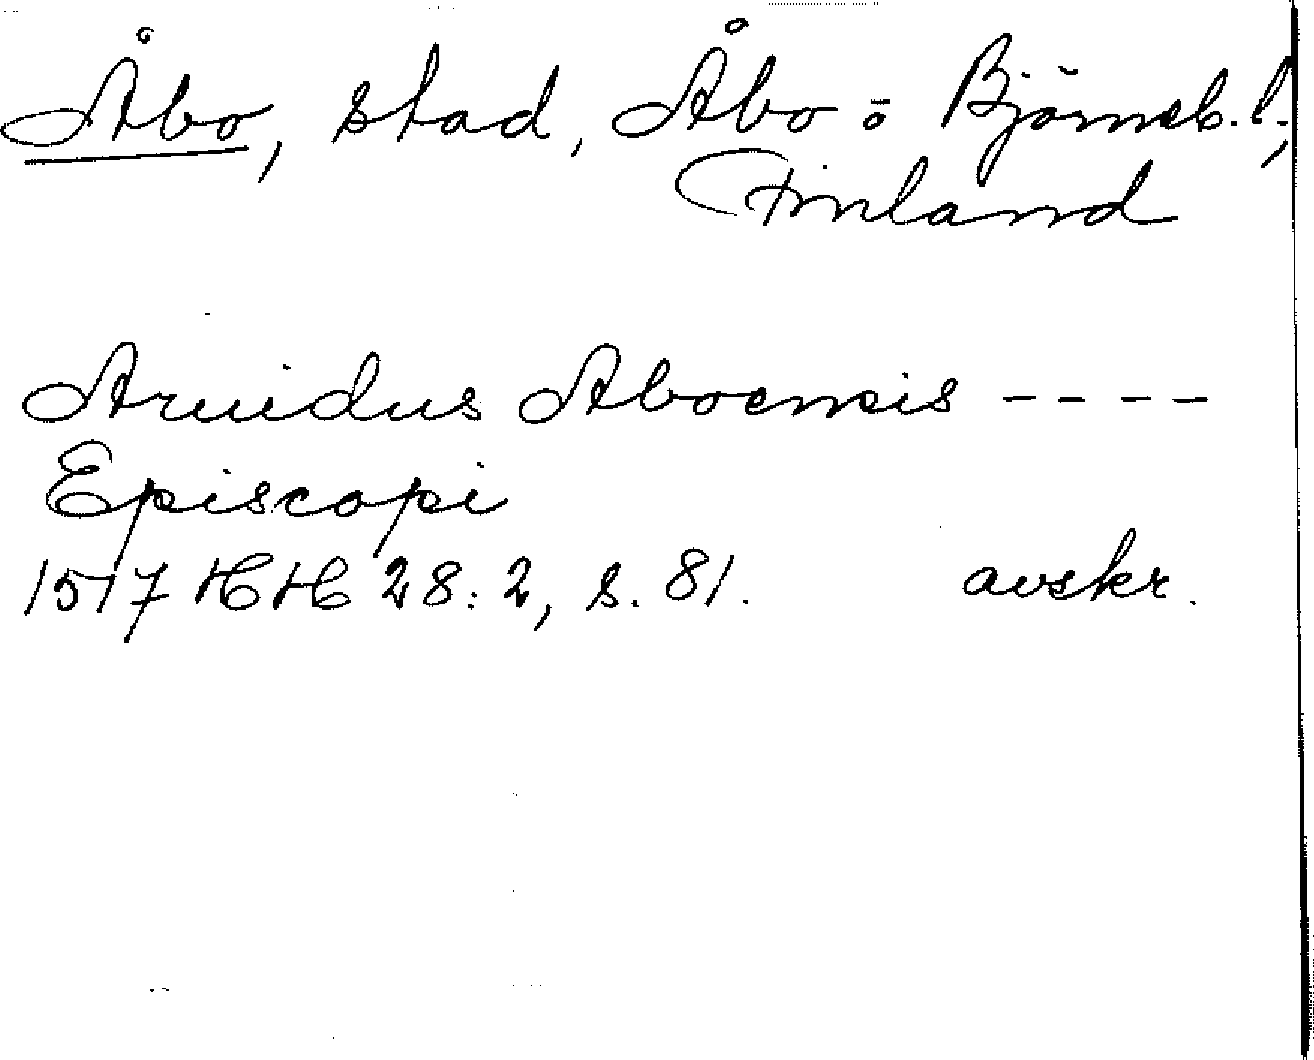 Åbo, stad, Åbo o Björneb. l.,
Finland
Aruidus Aboensis ----
Episcopi
1517 HH 28:2, s. 81. avskr.